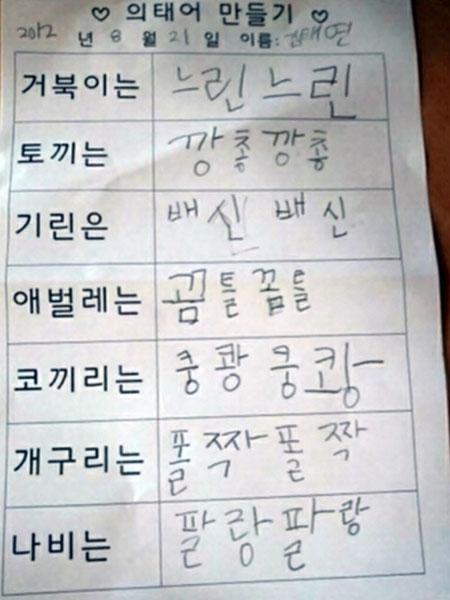 ♡ 의태어 만들기 ♡
2012 년 8 월 21 일 이름: 김태연
거북이는 느린 느린
토끼는 깡총 깡총
기린은 배신 배신
애벌레는 꿈틀 꿈틀
코끼리는 쿵쾅 쿵쾅
개구리는 폴짝 폴짝
나비는 팔랑 팔랑